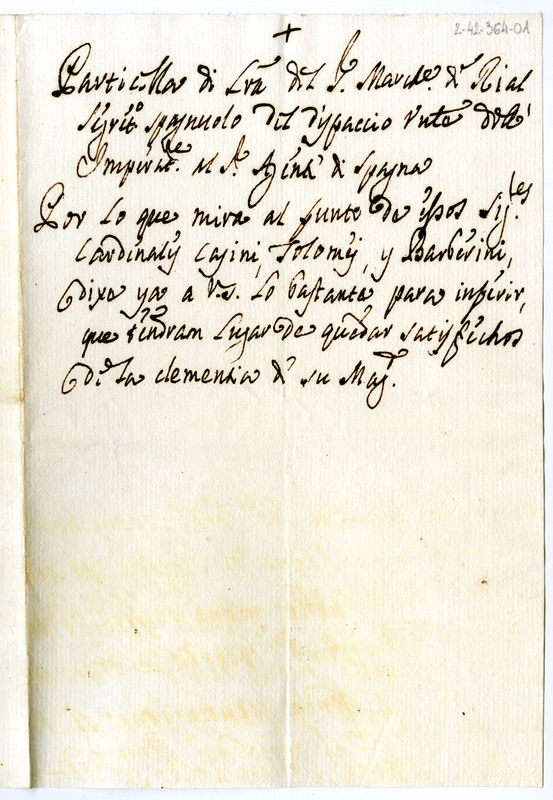 2-42-364-01
+
Particella di Lrã del Sr. March.e de Rial
Segret.o spagnuolo del dispaccio vnte della
Imperat.ce al Sr. Agente di Spagna
Por lo que mira al punto de essos Sig.res
Cardinales Casini, Tolomei, y Barberini,
dixe ya a V.S. lo bastante para inferir,
que tendram lugar de quedar satisfechos
de la clementia de su Mag.d